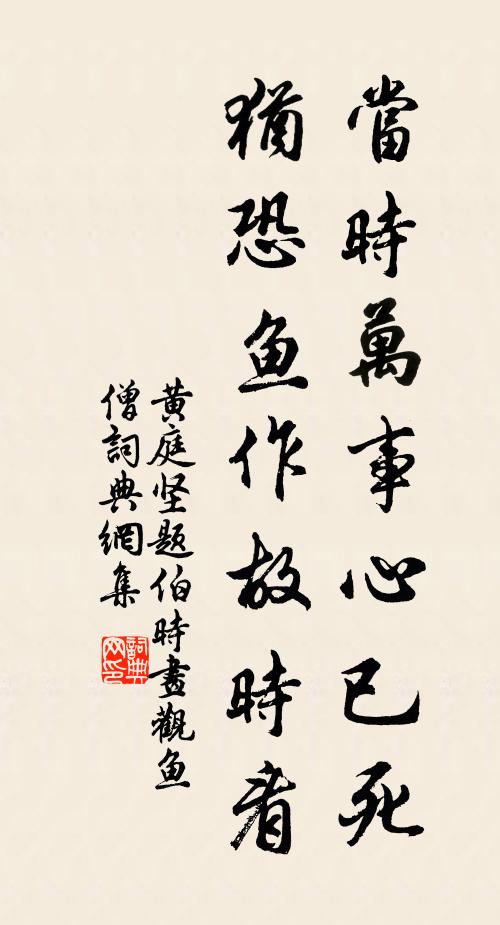 當時萬事心已死
猶恐魚作故時看
黄庭坚题伯時畫觀魚
僧詞典網集
詞典
网印